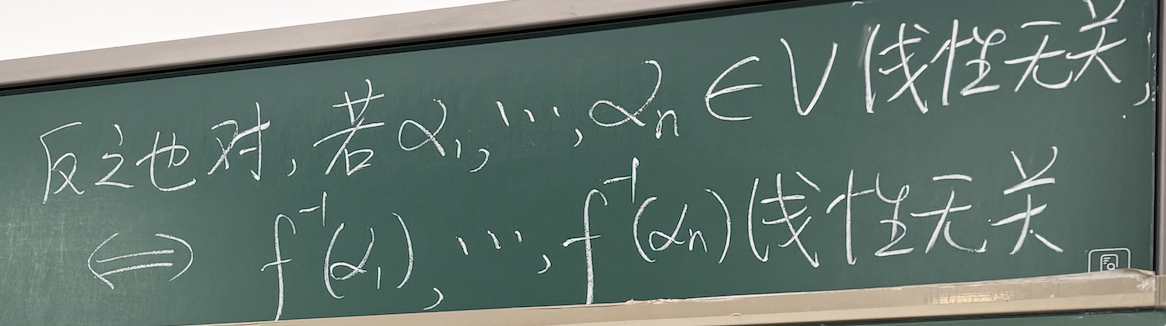 反之也对,若α₁,…,αₙ∈V线性无关;
⟺ f⁻¹(α₁),…,f⁻¹(αₙ)线性无关